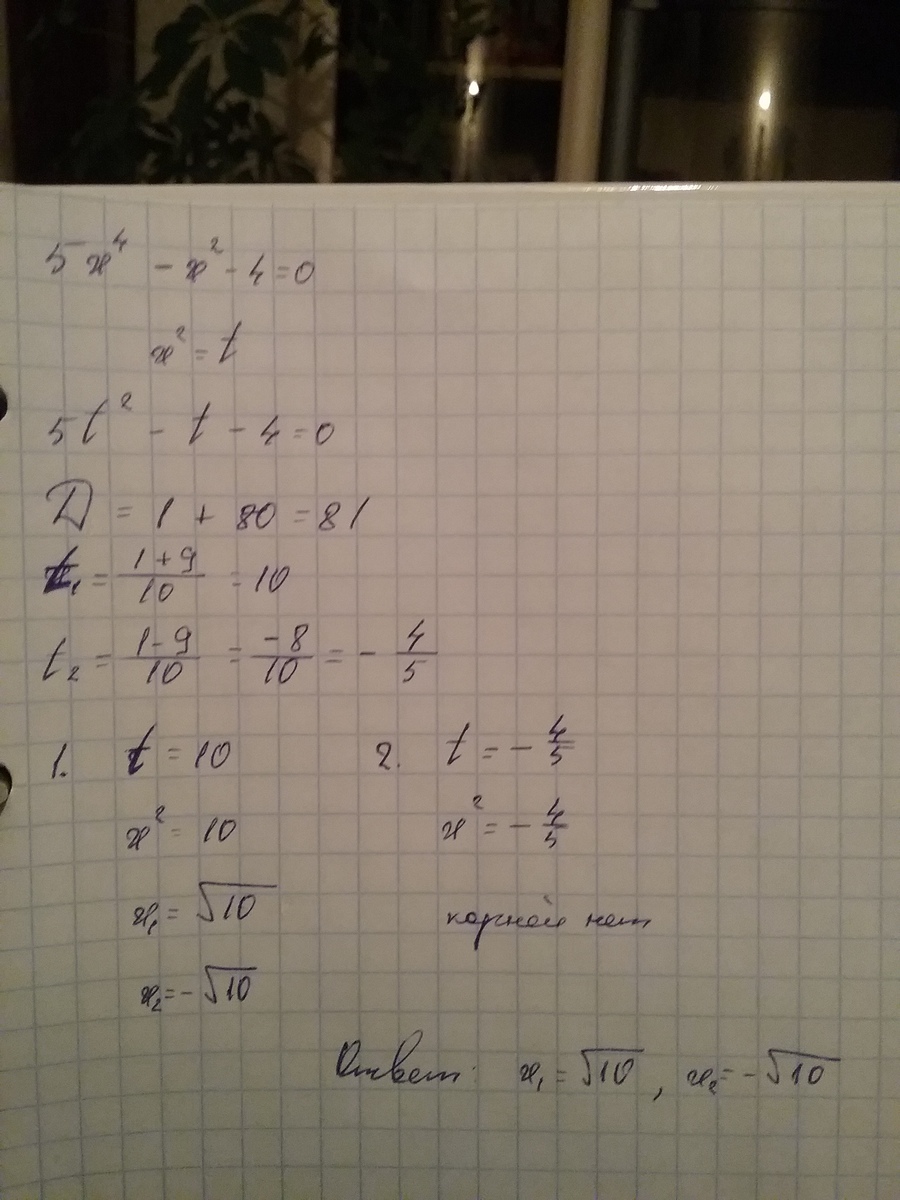 5x⁴ - x² - 4 = 0
x² = t
5t² - t - 4 = 0
D = 1 + 80 = 81
t₁ = (1+9)/10 = 10
t₂ = (1-9)/10 = -8/10 = - 4/5
1. t = 10 2. t = - 4/5
x² = 10 x² = - 4/5
x₁ = √10 корней нет
x₂ = -√10
Ответ: x₁ = √10 , x₂ = -√10